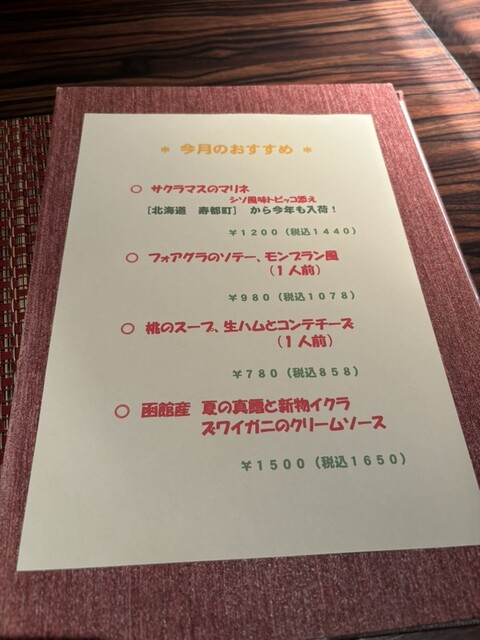 * 今月のおすすめ *
○ サクラマスのマリネ
シソ風味トビッコ添え
[北海道 寿都町] から今年も入荷！
￥1200(税込1440)
○ フォアグラのソテー、モンブラン風
(1人前)
￥980(税込1078)
○ 桃のスープ、生ハムとコンテチーズ
(1人前)
￥780(税込858)
○ 函館産 夏の真鱈と新物イクラ
ズワイガニのクリームソース
￥1500(税込1650)